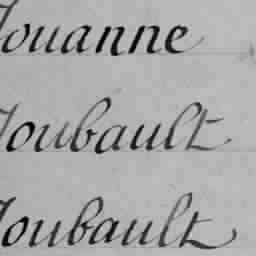 Jouanne
Joubault
Joubault